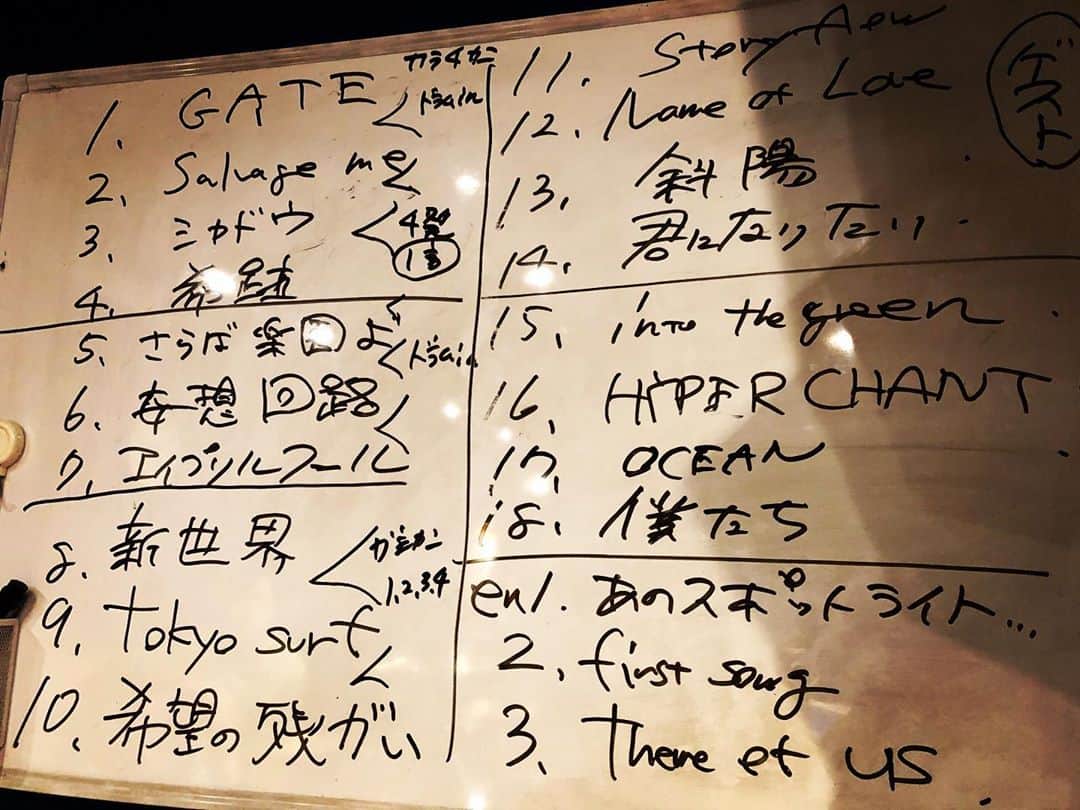 1. GATE
カラオカニ
トラain
2. Salvage me
3. ミカドウ
4発
1言
4. 奇跡
5. さらば楽園よ
トラain
6. 妄想回路
7. エイプリルフール
8. 新世界
1,2,3,4
9. tokyo surf
10. 希望の残がい
11. Story
12. Name of Love
ゲスト
13. 斜陽
14. 君になりたい
15. into the green
16. HYPER CHANT
17. OCEAN
18. 僕たち
en1. あのスポットライト...
2. first song
3. Theme of us